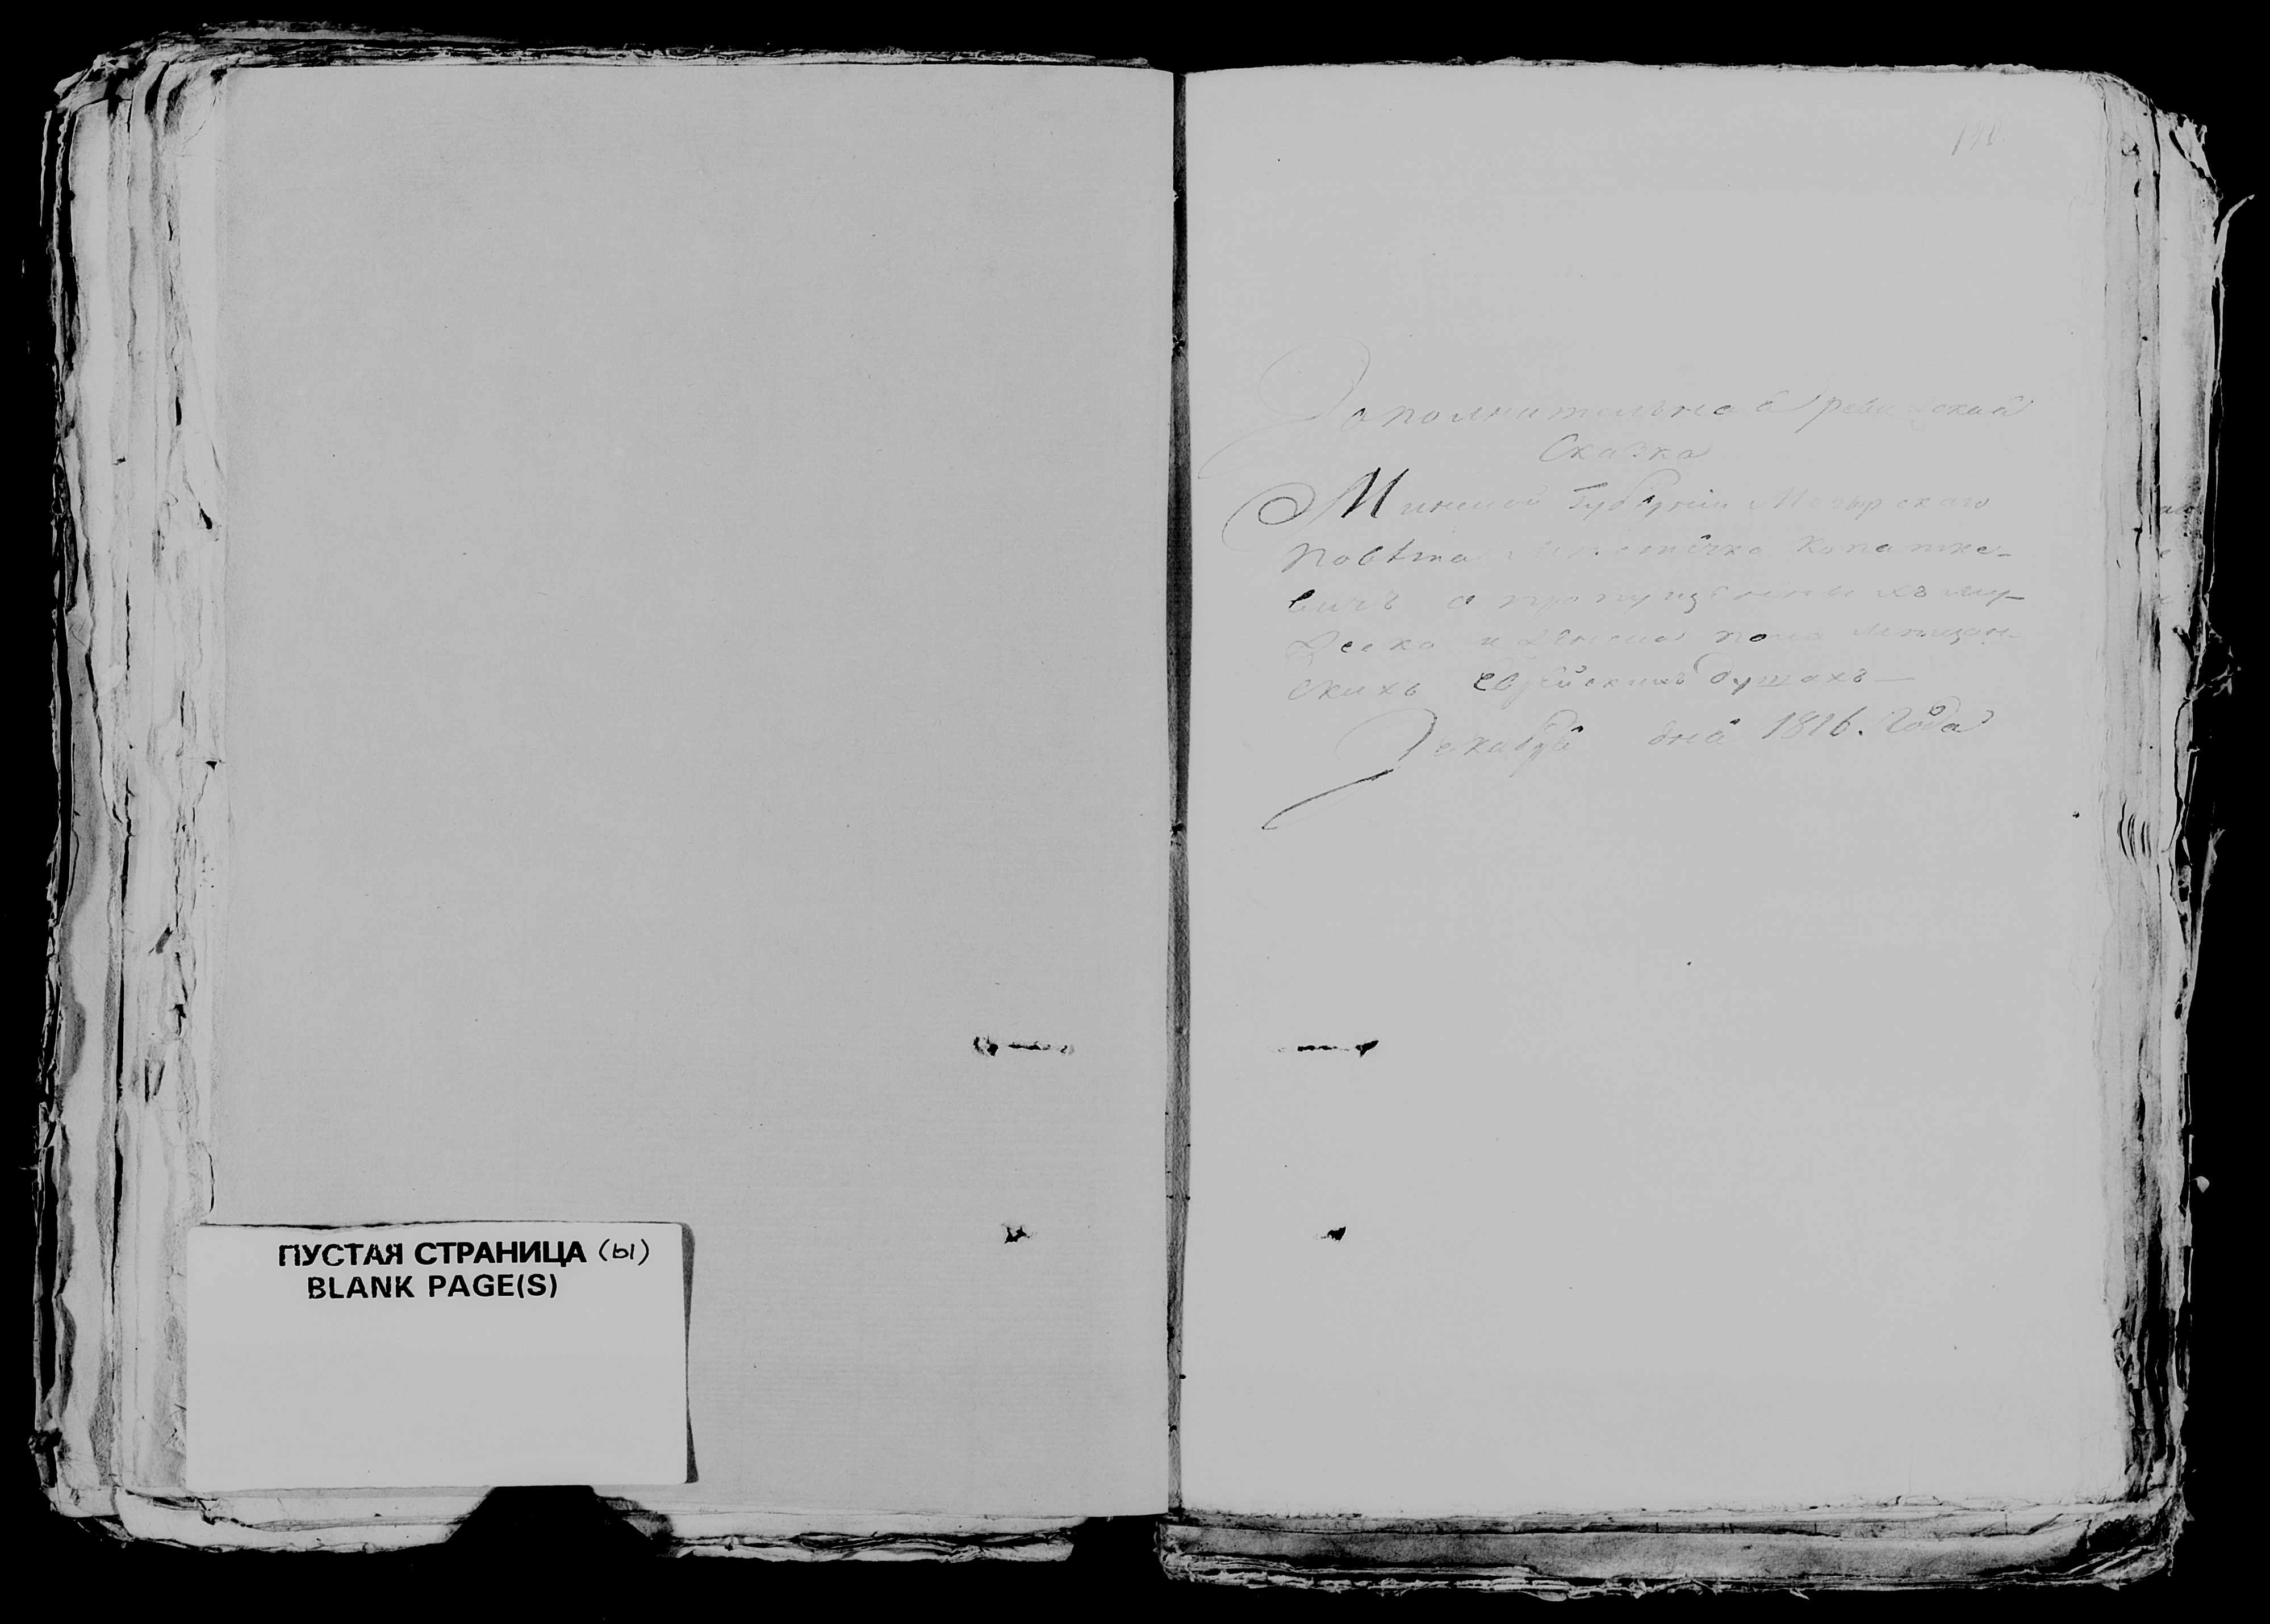 ПУСТАЯ СТРАНИЦА (ы)
BLANK PAGE(S)
Дополнительная ревизская
Сказка
Минской Губернии Мозырскаго
повѣта Мѣстечка Копатке-
вичъ о пропущенныхъ му-
жеска и женска пола мѣщан-
скихъ еврейскихъ душахъ—
Декабря дня 1816. Года